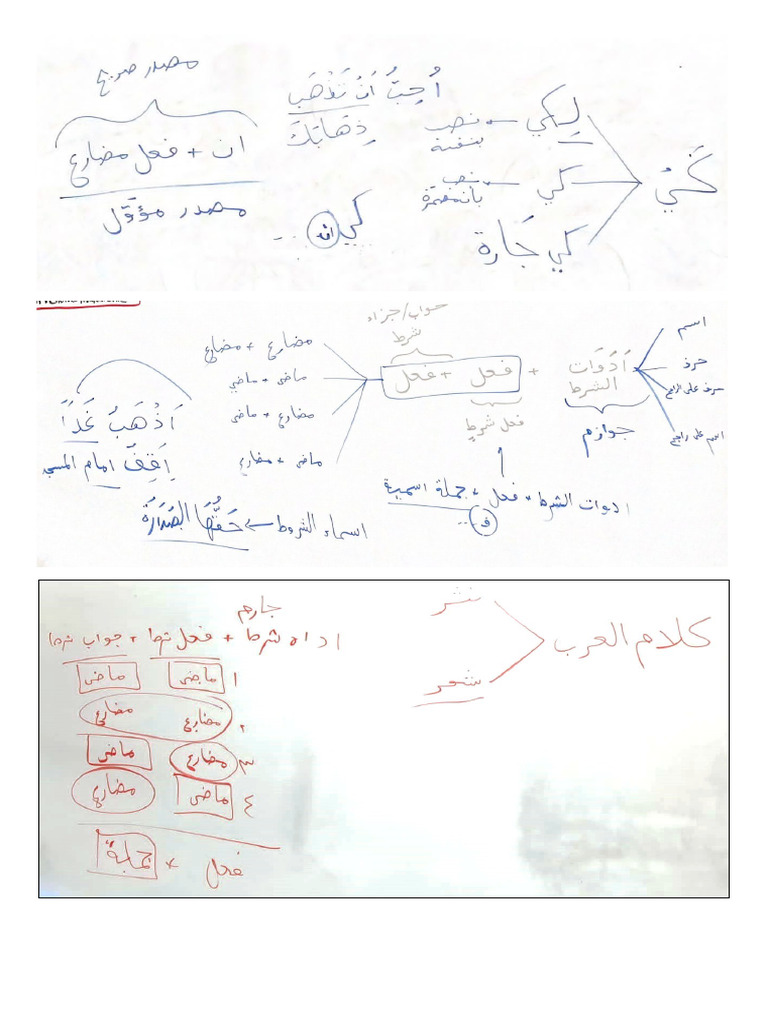 مصدر صريح
ان + فعل مضارع
مصدر مؤوّل
أُحِبُّ أَنْ تَذْهَبَ
ذِهَابَكَ
كَيْ
لِكي - نصب بنفسه
كي - نصب بأن مضمرة
كي جَارة
كي (ان) ...
جواب/جزاء
شرط
أَدَوَات الشرط + فعل + فعل
جوازم
فعل شرط
اسم
حرف
حرف على الراجح
اسم على راجح
مضارع + مضارع
ماضي + ماضي
مضارع + ماضي
ماضي + مضارع
أَذْهَبُ غَدًا
أَقِفُ امام المسجد
ادوات الشرط + فعل + جملة اسمية
ف ...
اسماء الشروط ← حَقُّهَا الصَدَارَةُ
كلام العرب
نثر
شعر
جازم
اداه شرط + فعل شرط + جواب شرط
١ ماضي ماضي
٢ مضارع مضارع
٣ مضارع ماضي
٤ ماضي مضارع
فعل + جملة